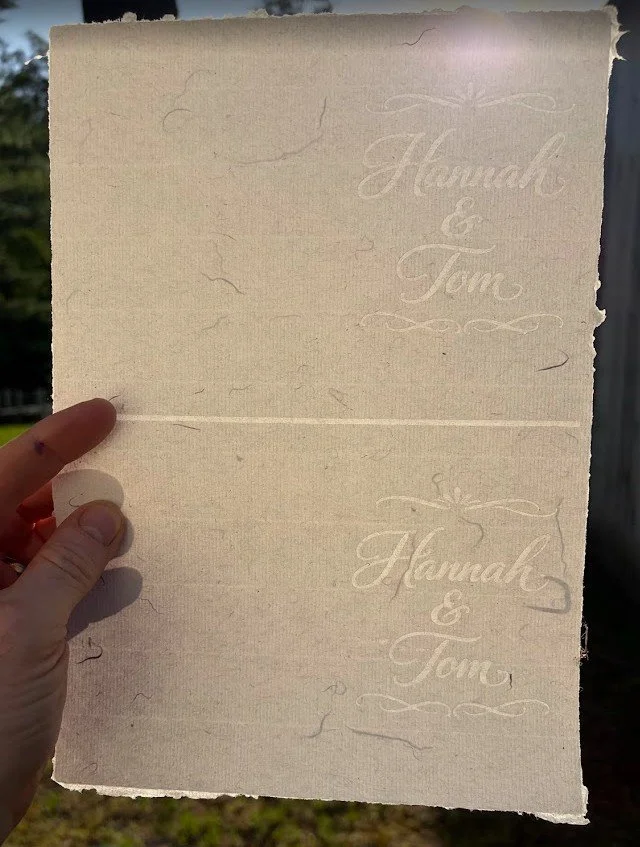 Hannah
&
Tom
Hannah
&
Tom